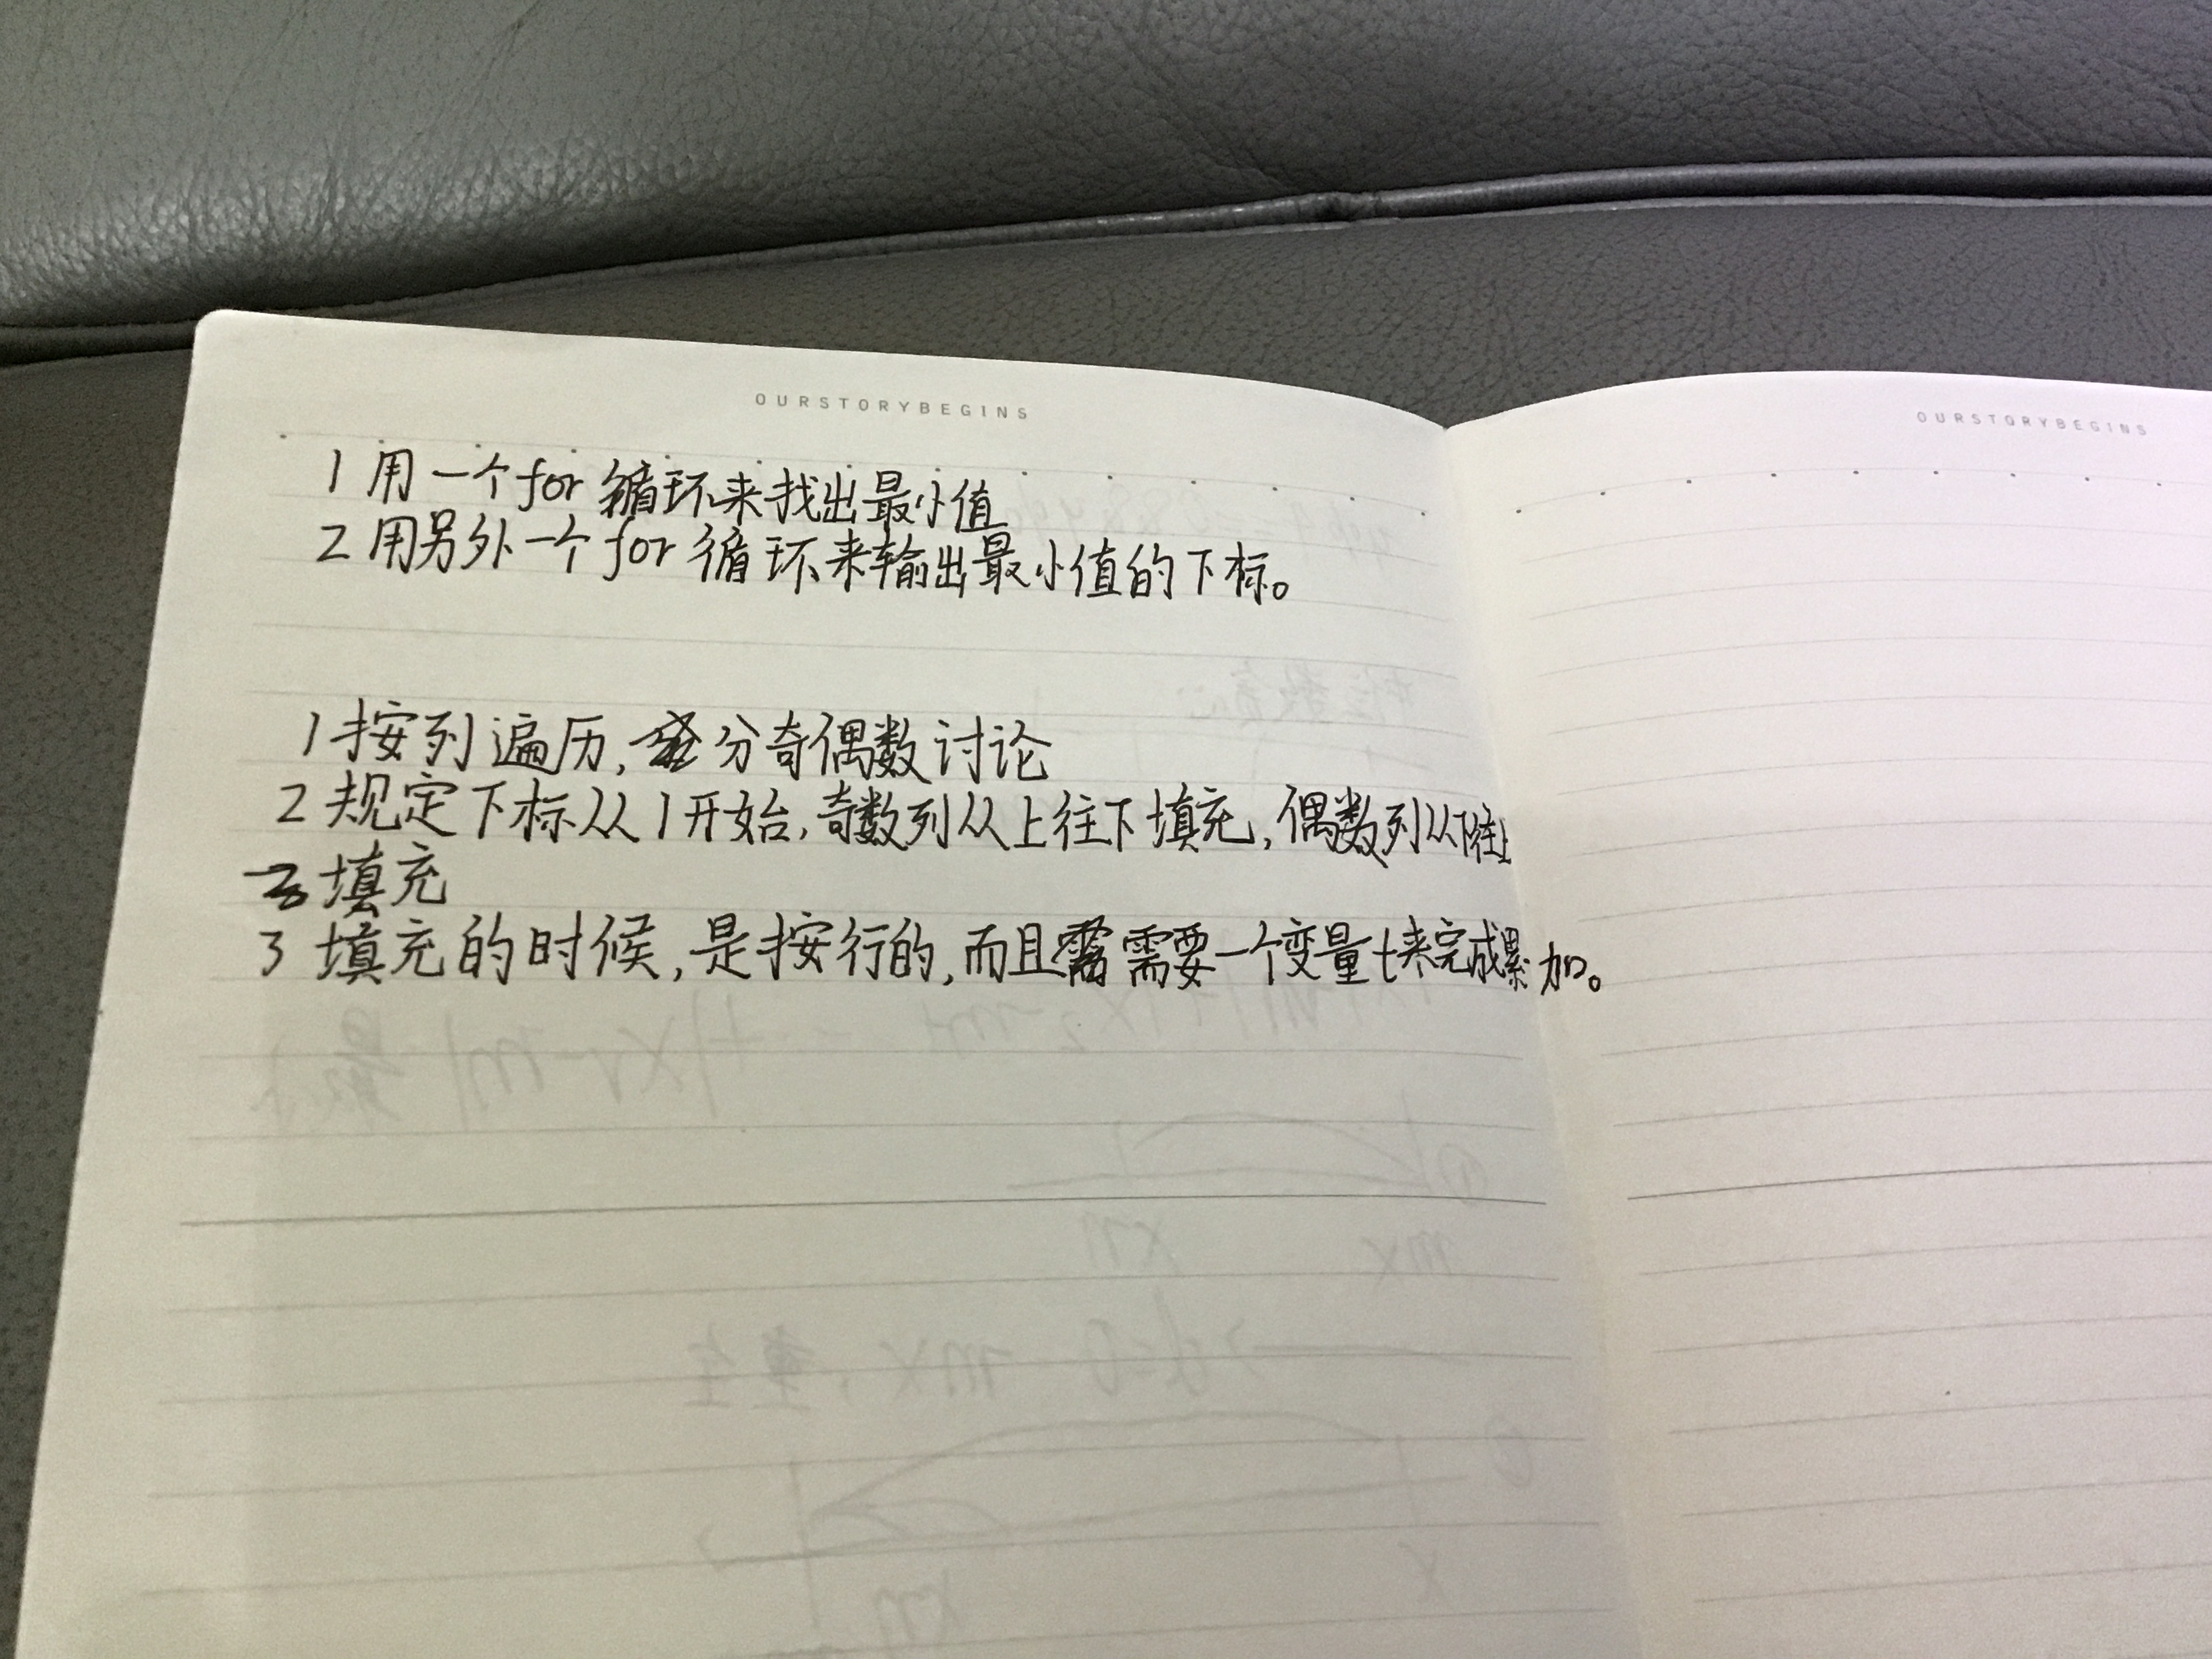 OURSTORYBEGINS
OURSTORYBEGINS
1 用一个for 循环来找出最小值
2 用另外一个for 循环来输出最小值的下标。
1 按列遍历，分奇偶数讨论
2 规定下标从1开始，奇数列从上往下填充，偶数列从下往上
填充
3 填充的时候，是按行的，而且需要一个变量t来完成累加。